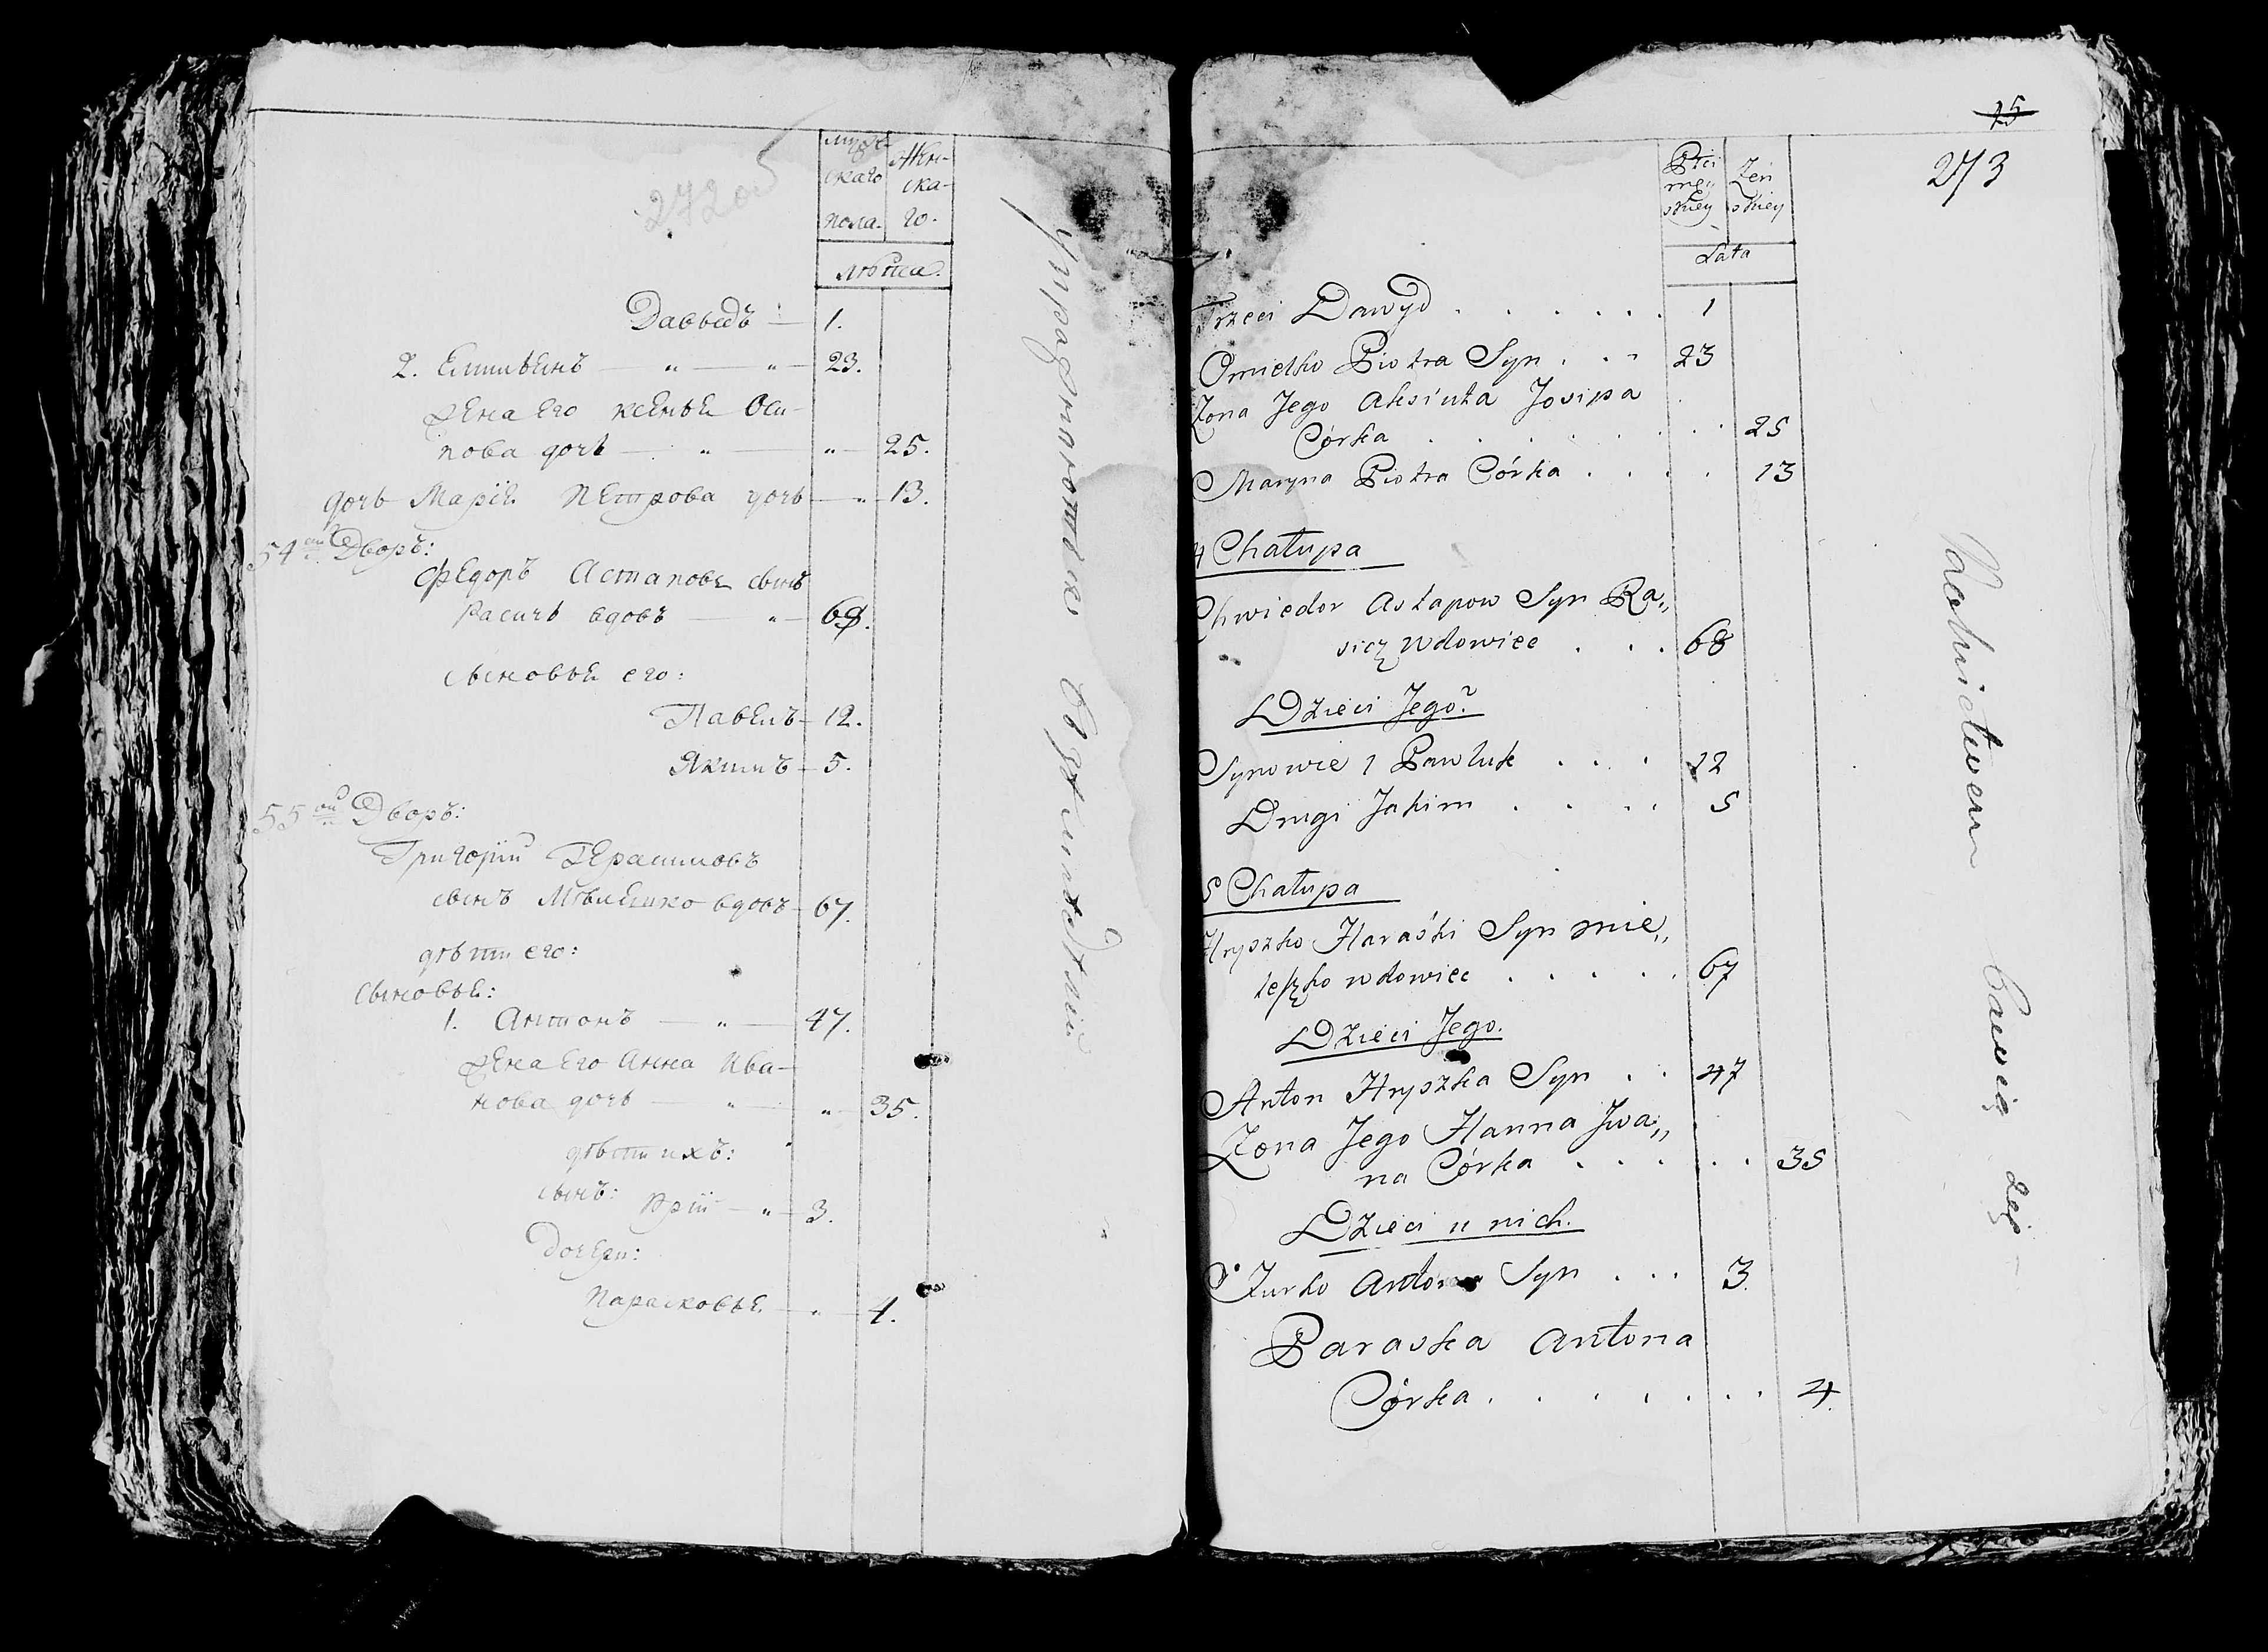 272 об
мужескаго пола.
женскаго.
лѣта.
Давыдъ — 1.
2. Емильянъ — " — " — 23.
жена Его ксенья Оси-
пова дочь — " — " — 25.
дочь Марія Петрова дочь — " — 13.
54ой Дворъ:
Федоръ Астаповъ сынъ
Расичь вдовъ — " — 68.
сыновья его:
Павелъ — 12.
Якимъ — 5.
55ой Дворъ:
Григорій Герасимовъ
сынъ Мѣлешко вдовъ — 67.
дѣти его:
Сыновья:
1. Антонъ — " — 47.
жена Его Анна Ива-
нова дочь — " — " — 35.
дѣти ихъ:
сынъ: Юрій — " — 3.
Дочери:
Парасковья — " — 4.
25
273
Płci męskiey
Żeńskiey
Lata
Trzeci Dawyd . . . . . . 1
Omielko Piotra Syn . . . 23
Żona Jego Aksiuta Josipa
Córka . . . . . . . . 25
Maryna Piotra Córka . . . . 13
4 Chałupa
Chwiedor Astapow Syn Ra„
sicz Wdowiec . . . 68
Dzieci Jego
Synowie 1 Pawluk . . . 12
Drugi Jakim . . . . 5
5 Chałupa
Hryszko Haraśki Syn Mie„
leszko wdowiec . . . . . 67
Dzieci Jego.
Anton Hryszka Syn . . 47
Żona Jego Hanna Jwa„
na Córka . . . . . . 35
Dzieci u nich.
Jurko Antona Syn . . . 3.
Paraska Antona
Córka . . . . . . . . 4.